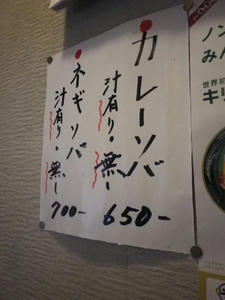 カレーソバ
汁有り・無し
650-
ネギソバ
汁有り・無し
700-
ノン
みん
世界初
キリ